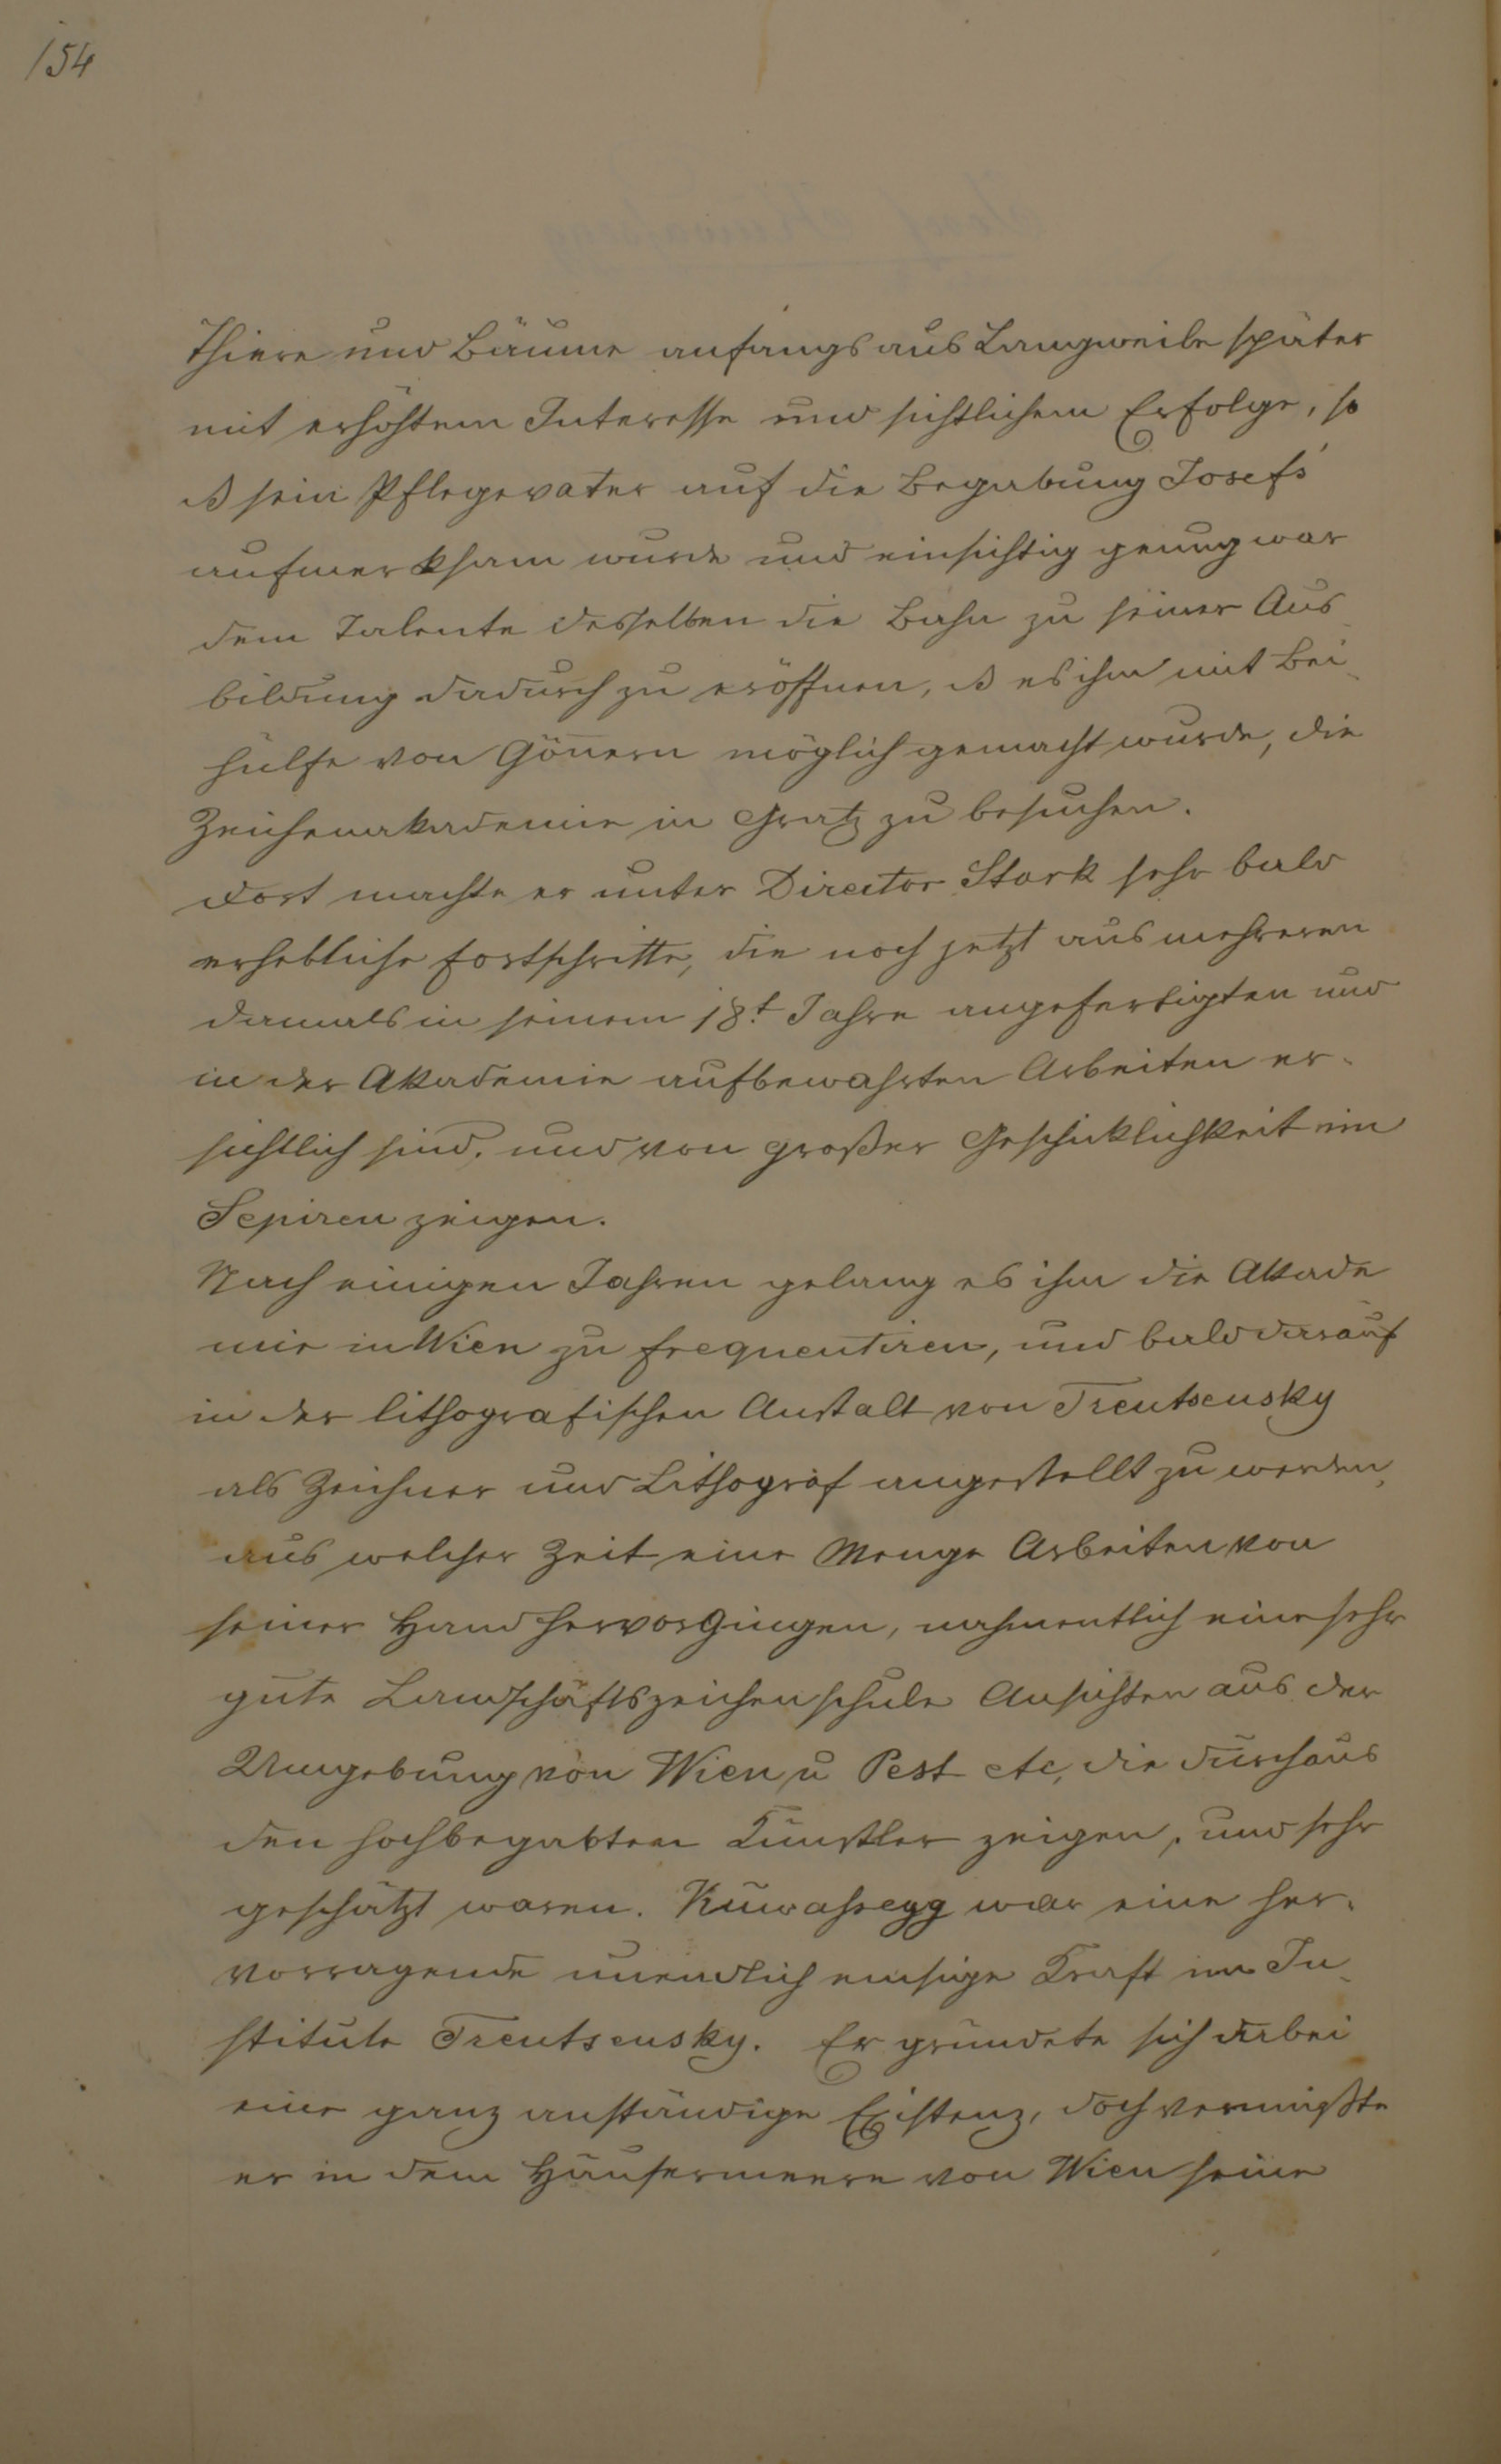 154
Thiere und Bäume anfangs aus Langweile später
mit erhöhtem Interesse und sichtlichem Erfolge, so
ß sein Pflegevater auf die Begabung Josefs
aufmerksam wurde und einsichtig genug war
dem Talente desselben die Bahn zu seiner Aus
bildung dadurch zu eröffnen, ß es ihm mit Bei-
hülfe von Göñern möglich gemacht wurde, die
Zeichenakademie in Gratz zu besuchen.
Dort machte er unter Director Stark sehr bald
erhebliche Fortschritte, die noch jetzt aus mehreren
damals in seinem 18t. Jahre angefertigten und
in der Akademie aufbewahrten Arbeiten er-
sichtlich sind, und von großer Geschicklichkeit im
Sepiren zeigen.
Nach einigen Jahren gelang es ihm die Akade
mie in Wien zu frequentiren, und bald darauf
in der lithografischen Anstalt von Trentsensky
als Zeichner und Lithograf angestellt zu werden,
aus welcher Zeit eine Menge Arbeiten von
seiner Hand hervorgingen, nahmentlich eine sehr
gute Landschaftszeichenschule Ansichten aus der
Umgebung von Wien u Pest etc, die durchaus
den hochbegabten Künstler zeigen, und sehr
geschätzt waren. Kuwassegg war eine her-
vorragende unendlich emsige Kraft im In-
stitute Trentsensky. Er gründete sich dabei
eine ganz anständige Existenz, doch vermißte
er in dem Häusermeere von Wien seine